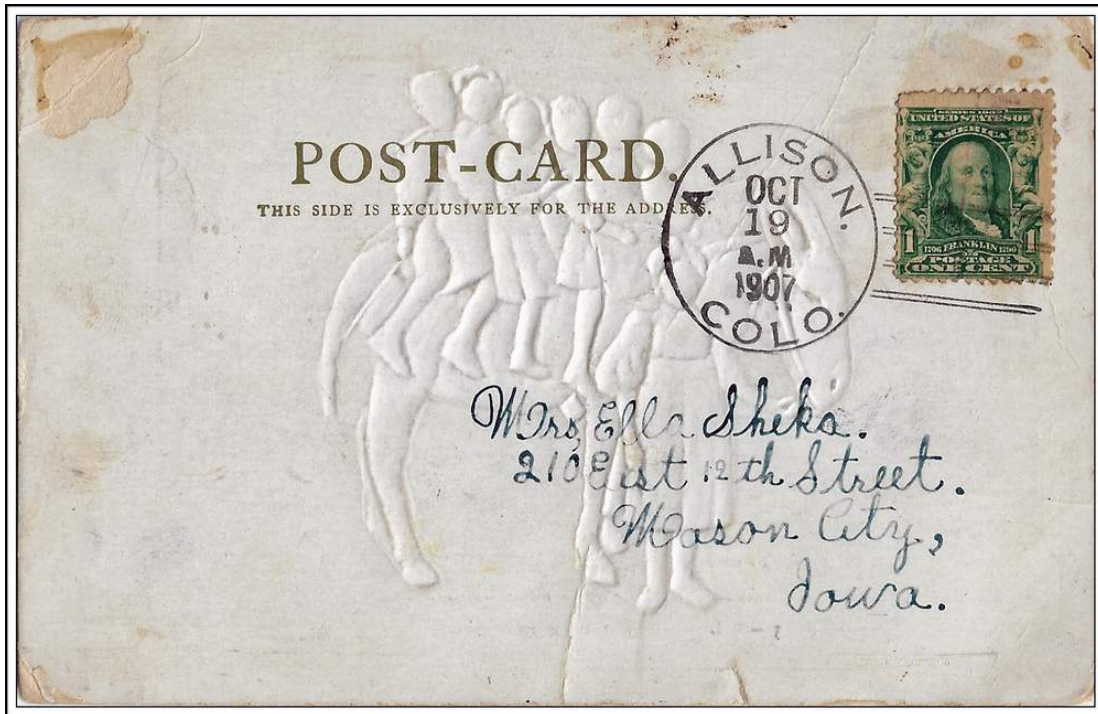 POST-CARD.
THIS SIDE IS EXCLUSIVELY FOR THE ADDRESS.
ALLISON.
OCT
19
A.M
1907
COLO.
SERIES 1902
UNITED STATES OF
AMERICA
1 1706 FRANKLIN 1790 1
POSTAGE
ONE CENT
Mrs, Ella Sheka.
210 East 12th Street.
Mason City,
Iowa.